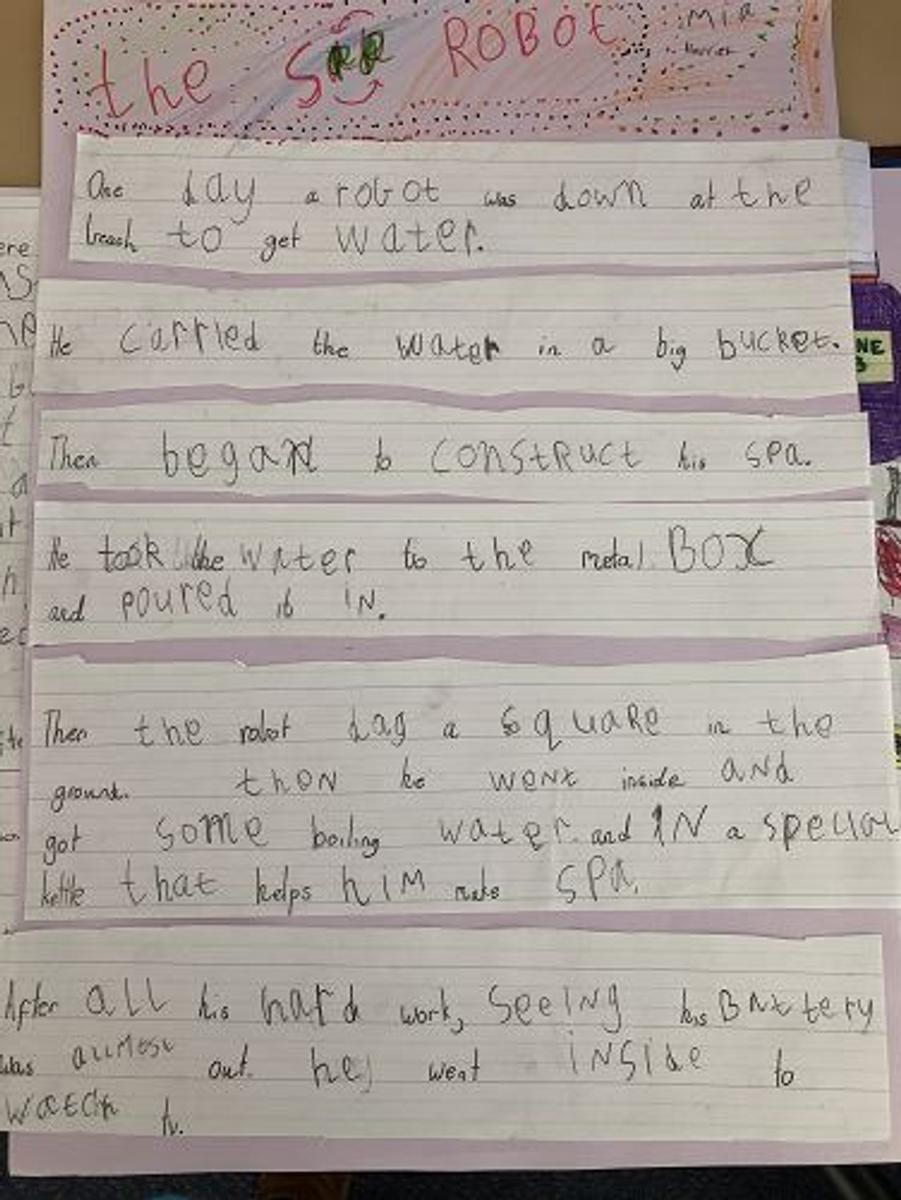 the SPA ROBOt
Mia
One day a robot was down at the
beach to get water.
He carried the water in a big bucket.
Then began to construct his spa.
He took the water to the metal BOX
and poured it IN.
Then the robot dag a square in the
ground. then he went inside and
got some boiling water and IN a
kettle that helps hIM make SPA.
After ALL his hard work, seeing his BAttery
was allmost out he went INSIde to
watch tv.
NE
3